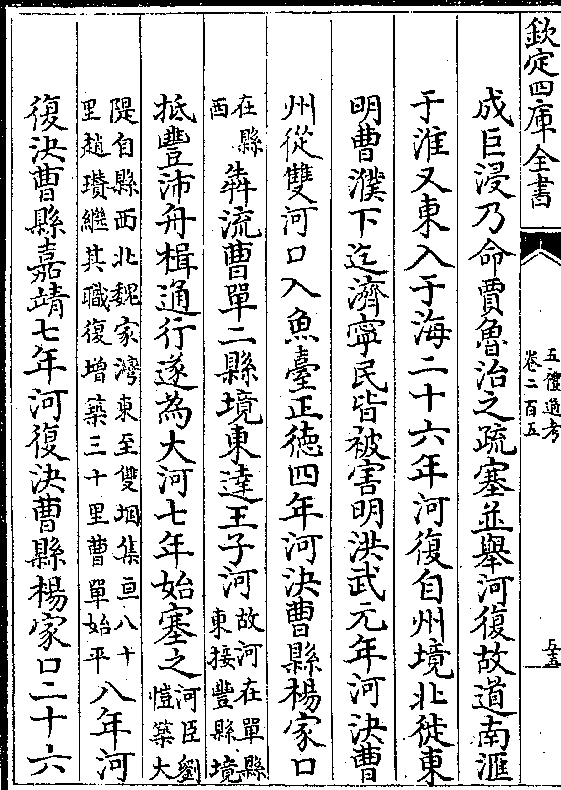 欽定四庫全書
五禮通考
卷二百五
成巨浸乃命賈魯治之疏塞並舉河復故道南滙
于淮又東入于海二十六年河復自州境北徙東
明曹濮下迄濟寧民皆被害明洪武元年河決曹
州從雙河口入魚臺正徳四年河決曹縣楊家口
在縣
西
犇流曹單二縣境東達王子河
故河在單縣
東接豐縣境
抵豐沛舟楫通行遂為大河七年始塞之
河臣劉
愷築大
隄自縣西北魏家灣東至雙堌集亘八十
里趙瓚繼其職復增築三十里曹單始平
八年河
復決曹縣嘉靖七年河復決曹縣楊家口二十六